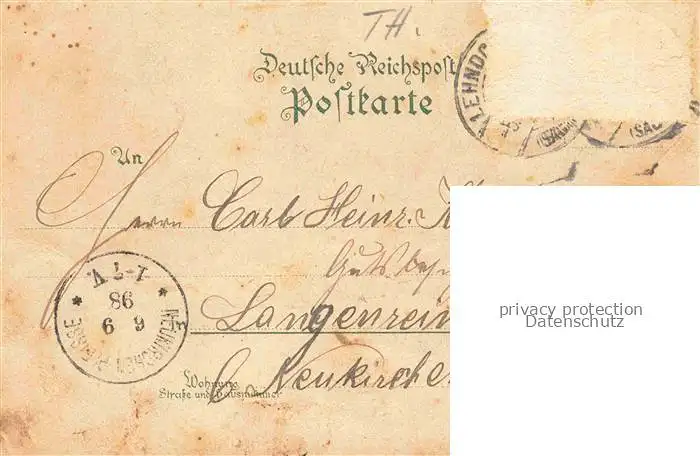 TH.
Deutsche Reichspost
Postkarte
KLEHNDO
(SAC (SAC
An
Herrn Carl Heinr. K
Gutsbes
Langenrein
b. Neukirche
Wohnung
Straße und Hausnummer
1-7 V.
98
6 9
NEUKIRCHEN
privacy protection
Datenschutz